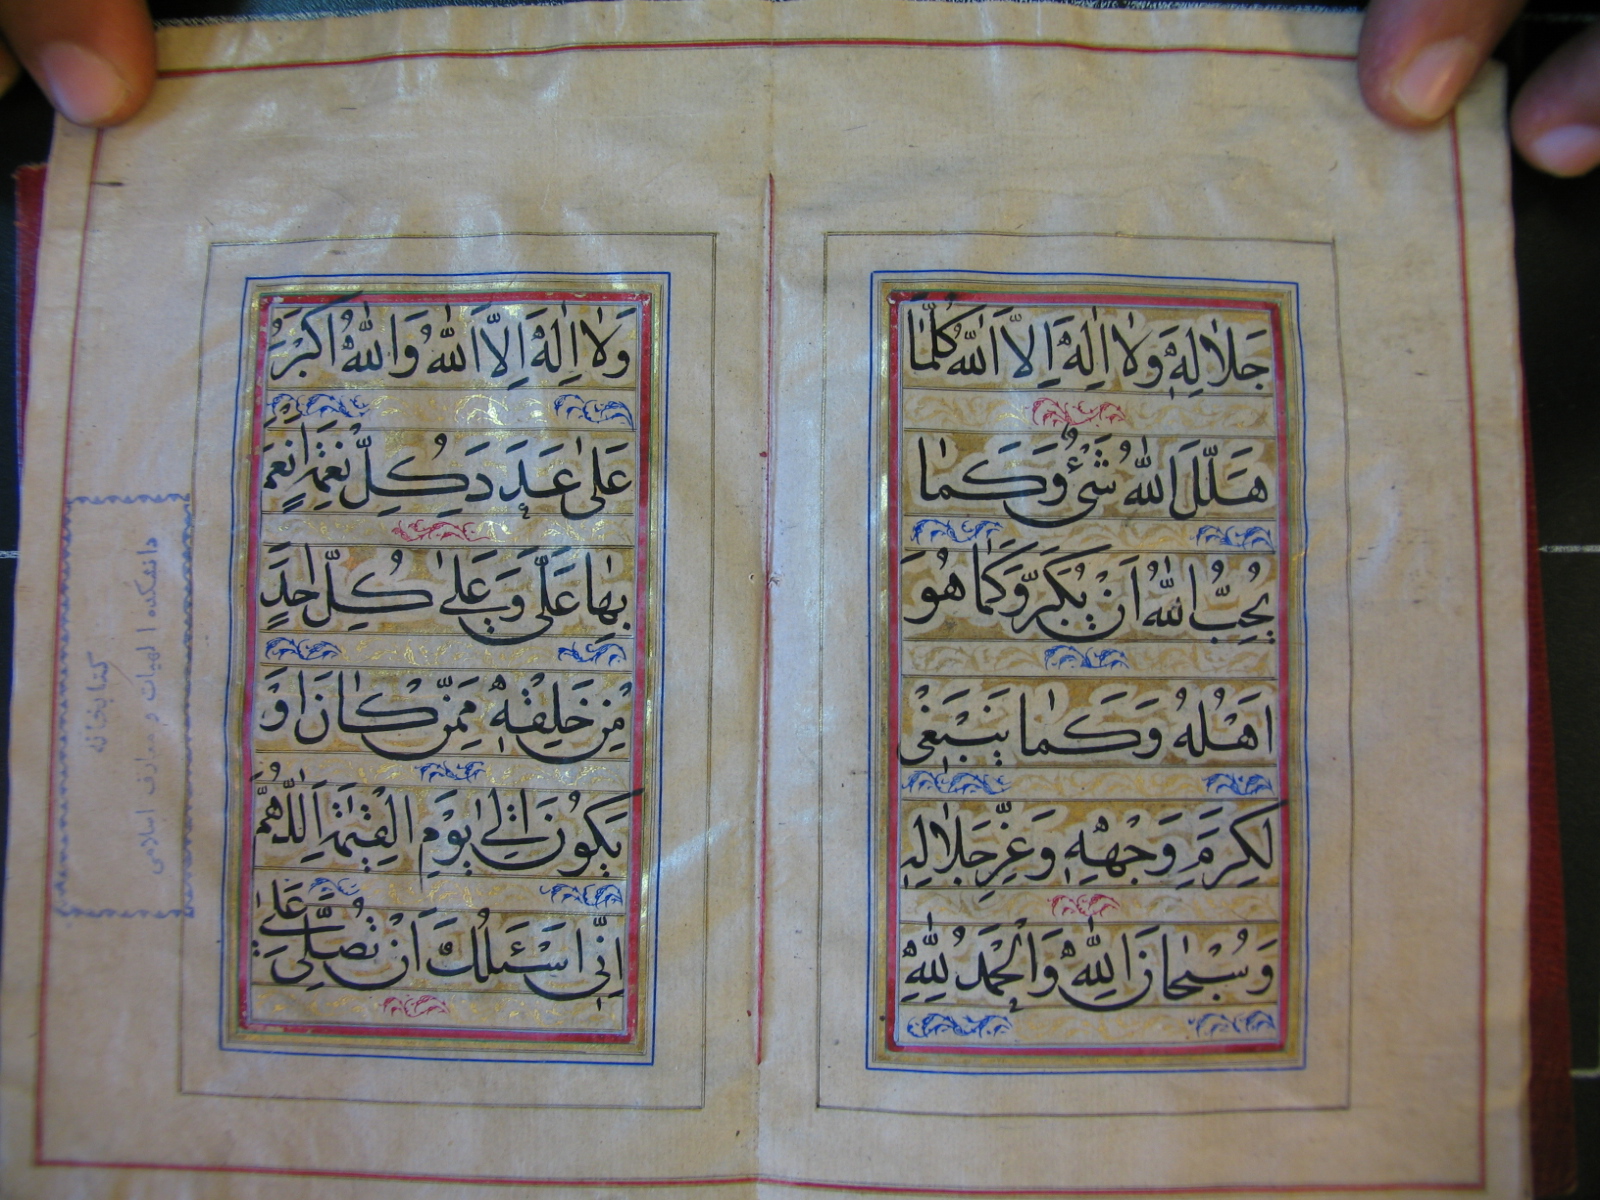 جَلالِهِ وَلا اِلهَ اِلاَّ اللهُ كُلَّما
هَلَّلَ اللهَ شَيْءٌ وَكَما
يُحِبُّ اللهُ اَنْ يُكَبَّرَ وَكَما هُوَ
اَهْلُهُ وَكَما يَنْبَغي
لِكَرَمِ وَجْهِهِ وَعِزِّ جَلالِهِ
وَسُبْحانَ اللهِ وَالْحَمْدُ لِلّهِ
وَلا اِلهَ اِلاَّ اللهُ وَاللهُ اَكْبَرُ
عَلى عَدَدِ كُلِّ نِعْمَةٍ اَنْعَمَ
بِها عَلَيَّ وَعَلى كُلِّ اَحَدٍ
مِنْ خَلْقِهِ مِمَّنْ كانَ اَوْ
يَكُونُ اِلى يَوْمِ الْقِيمَةِ اَللّهُمَّ
اِنّي اَسْئَلُكَ اَنْ تُصَلِّيَ عَلى
دانشکده الهیات و معارف اسلامی
کتابخانه